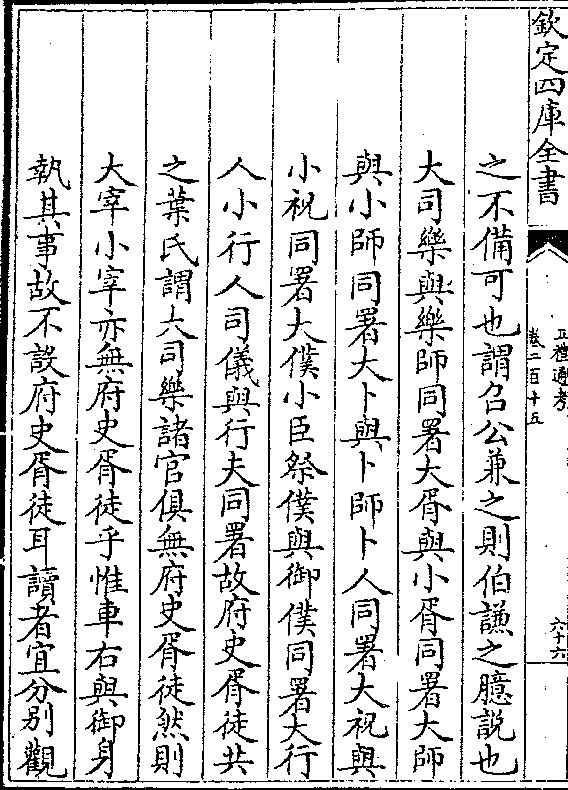 欽定四庫全書
五禮通考
卷二百十五
六十六
之不備可也謂召公兼之則伯謙之臆說也
大司樂與樂師同署大胥與小胥同署大師
與小師同署大卜與卜師卜人同署大祝與
小祝同署大僕小臣祭僕與御僕同署大行
人小行人司儀與行夫同署故府史胥徒共
之葉氏謂大司樂諸官俱無府史胥徒然則
大宰小宰亦無府史胥徒乎惟車右與御身
執其事故不設府史胥徒耳讀者宜分別觀